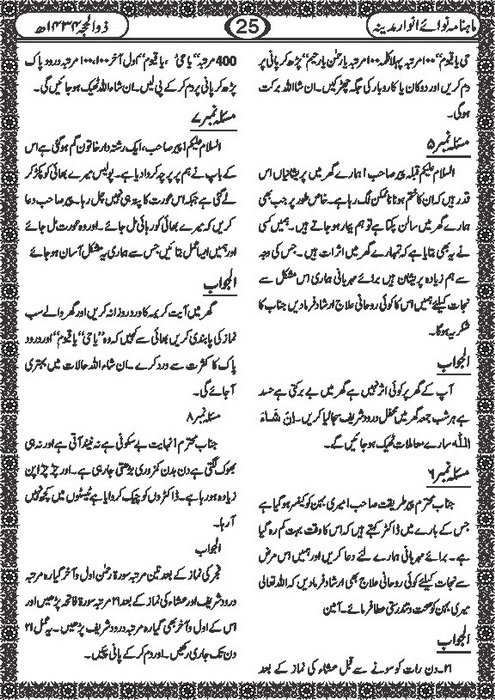 ماہنامہ نوائے انوار مدینہ
25
ذوالحجہ ۱۴۳۴ھ
حی یاقیوم“ ۱۰۰ مرتبہ پہلا کلمہ ۱۰۰ مرتبہ یارحمٰن یارحیم“ پڑھ کر پانی پر
دم کریں اور دوکان یا کاروبار کی جگہ چھڑکیں۔ ان شاءاللہ برکت
ہوگی۔
مسئلہ نمبر ۵
السلام علیکم قبلہ پیر صاحب! ہمارے گھر میں پریشانیاں اس
قدر ہیں کہ ان کا ختم ہونا ناممکن لگ رہا ہے۔ خاص طور پر جب بھی
ہمارے گھر میں سالن پکتا ہے تو ہم بیمار ہو جاتے ہیں۔ ہمیں کسی
نے یہ بھی بتایا ہے کہ تمہارے گھر میں اثرات ہیں۔ جس کی وجہ
سے ہم زیادہ پریشان ہیں برائے مہربانی ہماری اس مشکل سے
نجات کیلئے ہمیں اس کا کوئی روحانی علاج ارشاد فرمادیں جناب کا
شکریہ ہوگا۔
الجواب
آپ کے گھر پر کوئی اثر نہیں ہے گھر میں بے برکتی ہے حسد
ہے ہر شب جمعہ گھر میں محفل درود شریف سجالیا کریں۔ اِنْ شَاءَ
اللہ سارے معاملات ٹھیک ہو جائیں گے۔
مسئلہ نمبر ۶
جناب محترم پیر طریقت صاحب! میری بہن کو کینسر ہو گیا ہے
جس کے بارے میں ڈاکٹر کہتے ہیں کہ اس کا وقت بہت کم رہ گیا
ہے۔ برائے مہربانی ہمارے لئے دعا کریں اور ہمیں اس مرض
سے نجات کیلئے کوئی روحانی علاج بھی ارشاد فرمادیں کہ اللہ تعالی
میری بہن کو صحت و تندرستی عطا فرمائے۔ آمین
الجواب
۲۱۔ دن رات کو سونے سے قبل عشاء کی نماز کے بعد
400 مرتبہ ”یاحی“، یاقیوم“ اول آخر ۱۰۰، ۱۰۰ مرتبہ درود پاک
پڑھ کر پانی پر دم کر کے پی لیں۔ ان شاءاللہ ٹھیک ہو جائیں گی۔
مسئلہ نمبر ۷
السلام علیکم! پیر صاحب، ایک رشتہ دار خاتون گم ہو گئی ہے اس
کے باپ نے ہم پر پرچہ کروا دیا ہے۔ پولیس میرے بھائی کو پکڑ کر
لے گئی ہے جبکہ اس عورت کا پتہ ہی نہیں چل رہا۔ پیر صاحب دعا
کریں کہ میرے بھائی کو رہائی مل جائے۔ اور وہ عورت مل جائے
اور ہمیں ایسا عمل بتائیں جس سے ہماری یہ مشکل آسان ہو جائے
الجواب
گھر میں آیت کریمہ کا ورد روزانہ کریں اور گھر والے سب
نماز کی پابندی کریں بھائی سے کہیں کہ وہ ”یاحی“ یاقیوم“ اور درود
پاک کا کثرت سے ورد کرے۔ ان شاءاللہ حالات میں بہتری
آجائے گی۔
مسئلہ نمبر ۸
جناب محترم! نہایت بے سکونی ہے نہ نیند آتی ہے اور نہ ہی
بھوک لگتی ہے دن بدن کمزوری بڑھتی جا رہی ہے۔ اور چڑچڑا پن
زیادہ ہو رہا ہے۔ ڈاکٹروں کو چیک کروایا ہے ٹیسٹوں میں کچھ نہیں
آرہا۔
الجواب
فجر کی نماز کے بعد تین مرتبہ سورۃ رحمٰن اول و آخر گیارہ مرتبہ
درود شریف اور عشاء کی نماز کے بعد ۲۱ مرتبہ سورۃ فاتحہ پڑھیں اور
اس کے اول و آخر بھی گیارہ مرتبہ درود شریف پڑھیں۔ یہ عمل ۲۱
دن تک جاری رکھیں۔ اور دم کر کے پانی پئیں۔